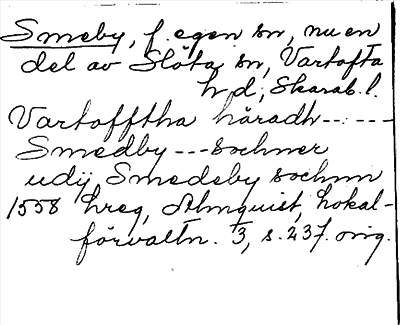 Smeby, f. egen sn, nu en
del av Slöta sn, Vartofta
hd, Skarab. l.
Vartofftha häradh-----
Smedby --- sochner
udij Smedeby sochnn
1558 hreg, Almquist, Lokal-
förvaltn. 3, s. 237. orig.